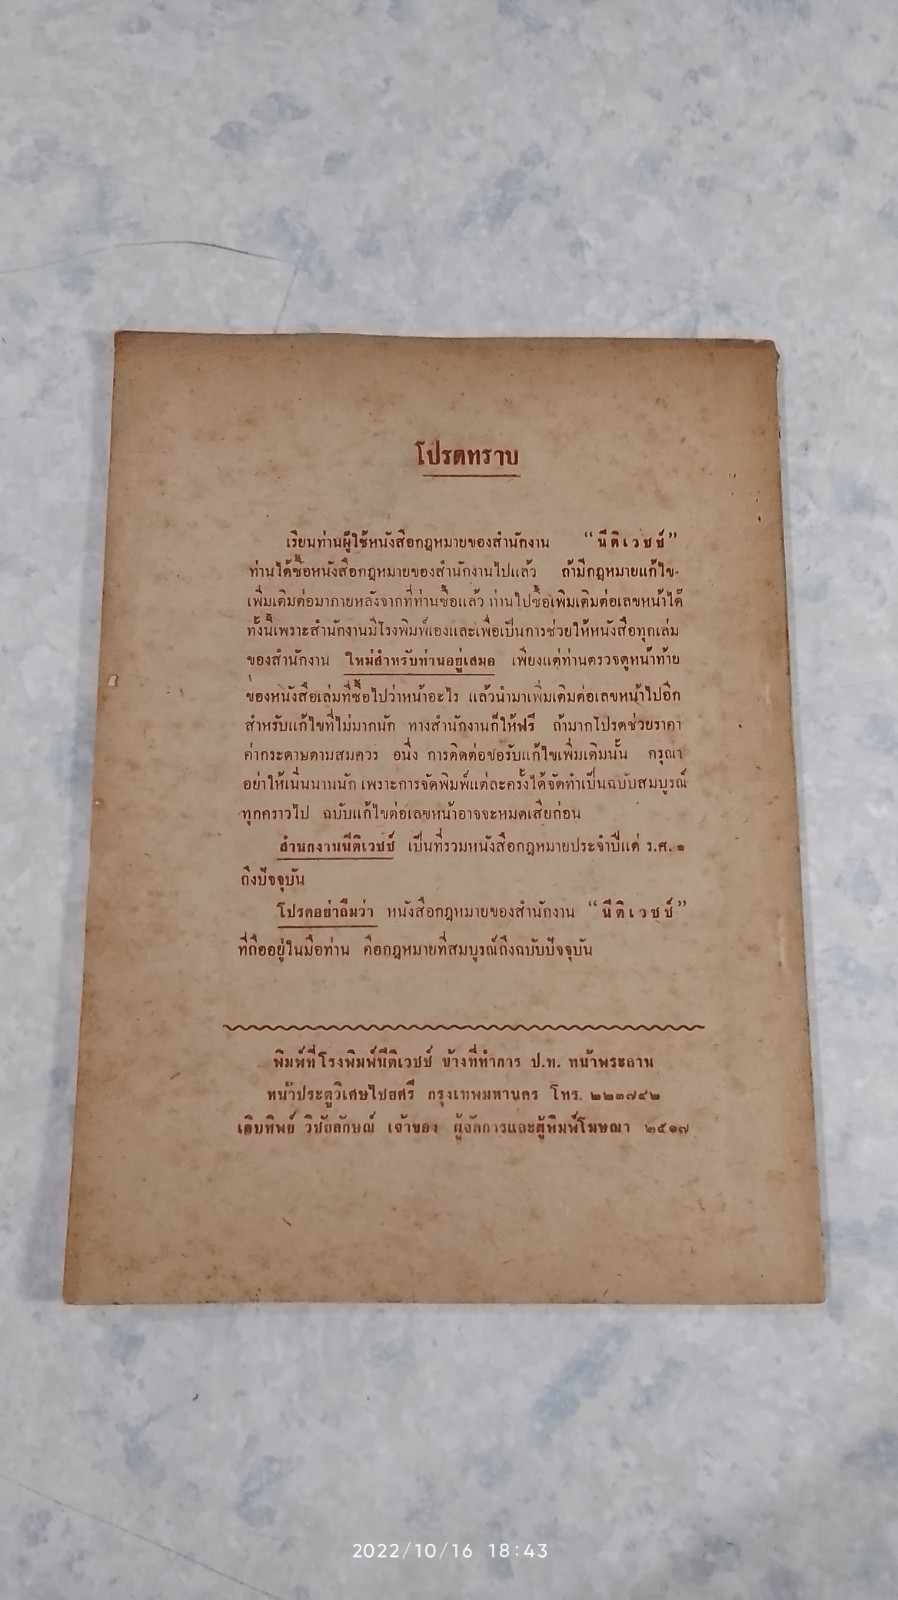 โปรดทราบ
เรียนท่านผู้ใช้หนังสือกฎหมายของสำนักงาน “นีติเวชช์”
ท่านได้ซื้อหนังสือกฎหมายของสำนักงานไปแล้ว ถ้ามีกฎหมายแก้ไข-
เพิ่มเติมต่อมาภายหลังจากที่ท่านซื้อแล้ว ท่านไปซื้อเพิ่มเติมต่อเลขหน้าได้
ทั้งนี้เพราะสำนักงานมีโรงพิมพ์เองและเพื่อเป็นการช่วยให้หนังสือทุกเล่ม
ของสำนักงาน ใหม่สำหรับท่านอยู่เสมอ เพียงแต่ท่านตรวจดูหน้าท้าย
ของหนังสือเล่มที่ซื้อไปว่าหน้าอะไร แล้วนำมาเพิ่มเติมต่อเลขหน้าไปอีก
สำหรับแก้ไขที่ไม่มากนัก ทางสำนักงานก็ให้ฟรี ถ้ามากโปรดช่วยราคา
ค่ากระดาษตามสมควร อนึ่ง การติดต่อขอรับแก้ไขเพิ่มเติมนั้น กรุณา
อย่าให้เนิ่นนานนัก เพราะการจัดพิมพ์แต่ละครั้งได้จัดทำเป็นฉบับสมบูรณ์
ทุกคราวไป ฉบับแก้ไขต่อเลขหน้าอาจจะหมดเสียก่อน
สำนักงานนีติเวชช์ เป็นที่รวมหนังสือกฎหมายประจำปีแต่ ร.ศ. ๑
ถึงปัจจุบัน
โปรดอย่าลืมว่า หนังสือกฎหมายของสำนักงาน “นีติเวชช์”
ที่ถืออยู่ในมือท่าน คือกฎหมายที่สมบูรณ์ถึงฉบับปัจจุบัน
พิมพ์ที่โรงพิมพ์นีติเวชช์ ข้างที่ทำการ ป.ท. หน้าพระลาน
หน้าประตูวิเศษไชยศรี กรุงเทพมหานคร โทร. ๒๒๓๗๔๒
เติบทิพย์ วิชัยลักษณ์ เจ้าของ ผู้จัดการและผู้พิมพ์โฆษณา ๒๕๑๗
2022/10/16 18:43